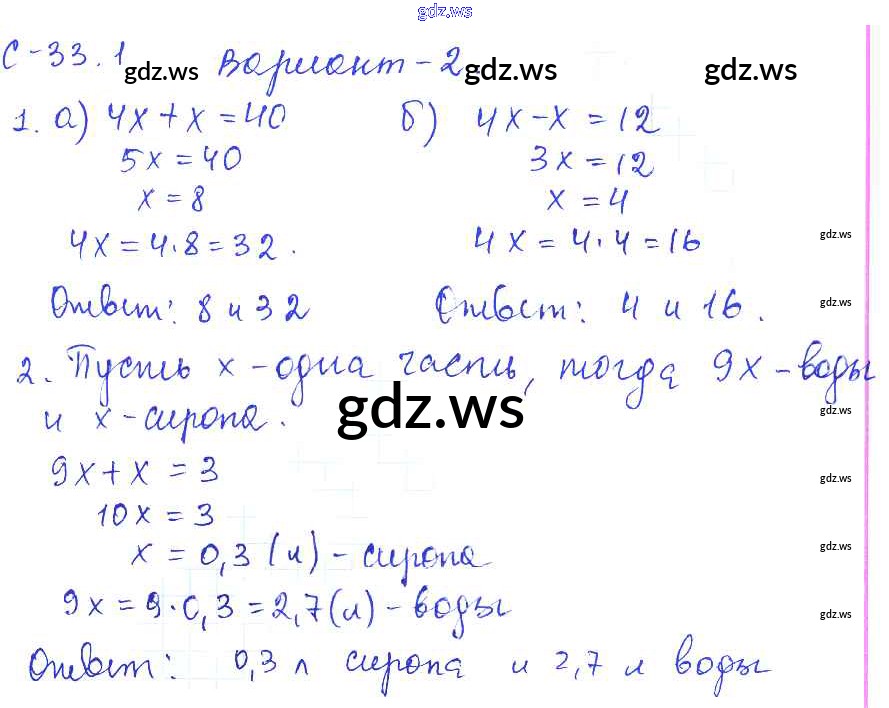 gdz.ws
С-33.1 Вариант-2
gdz.ws gdz.ws gdz.ws
1. а) 4x + x = 40 б) 4x - x = 12
5x = 40 3x = 12
x = 8 x = 4
4x = 4·8 = 32. 4x = 4·4 = 16
gdz.ws
Ответ: 8 и 32 Ответ: 4 и 16.
gdz.ws
2. Пусть x - одна часть, тогда 9x - воды
и x - сиропа.
gdz.ws
gdz.ws
9x + x = 3
gdz.ws
10x = 3
x = 0,3 (л) - сиропа
gdz.ws
9x = 9·0,3 = 2,7 (л) - воды
gdz.ws
Ответ: 0,3 л сиропа и 2,7 л воды